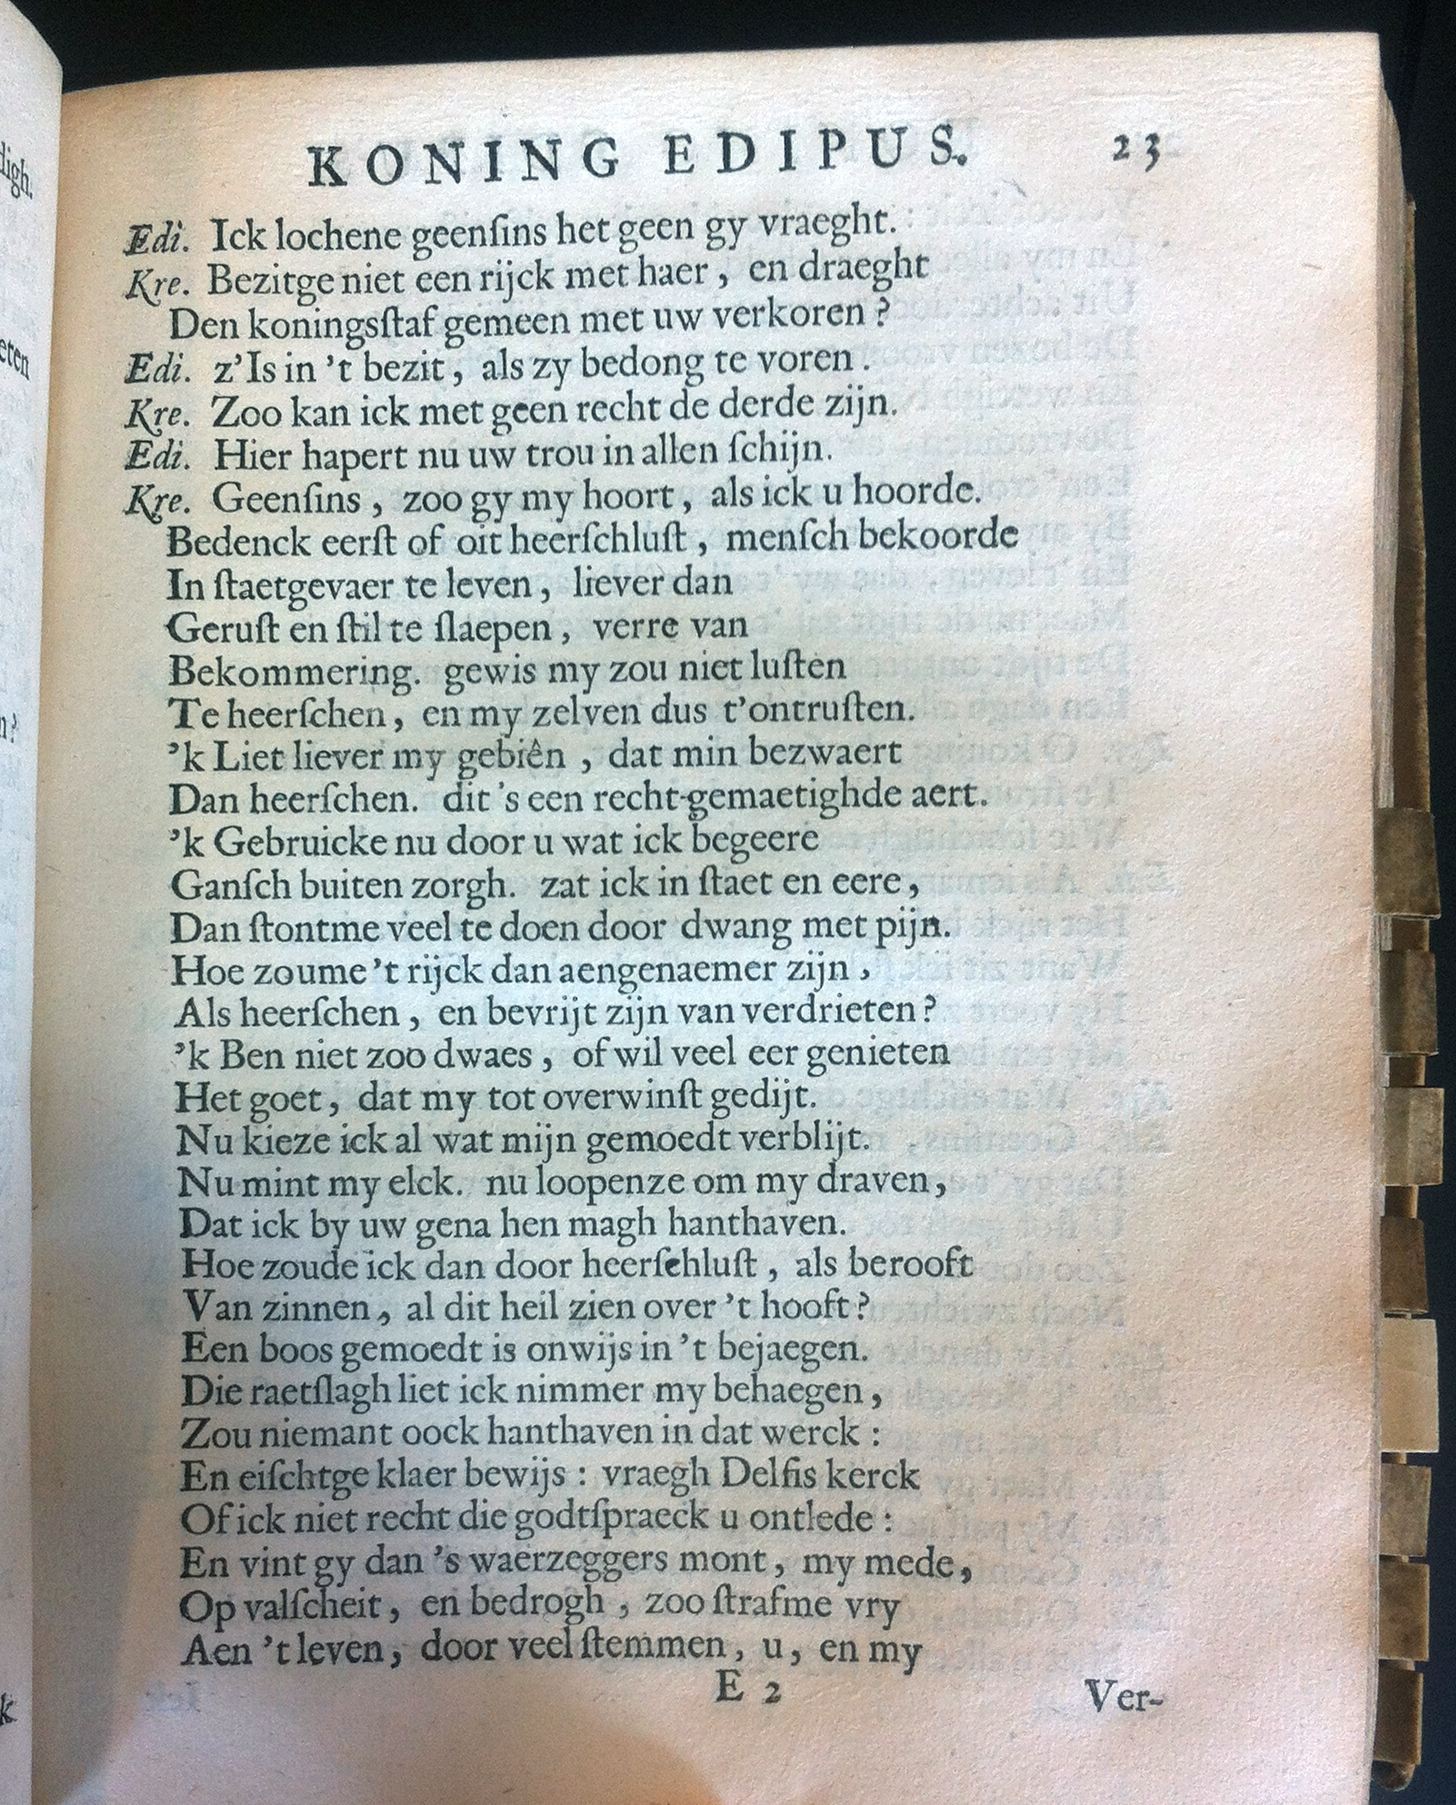 KONING EDIPUS. 23
Edi. Ick lochene geenſins het geen gy vraeght.
Kre. Bezitge niet een rijck met haer, en draeght
Den koningsſtaf gemeen met uw verkoren?
Edi. z'Is in 't bezit, als zy bedong te voren.
Kre. Zoo kan ick met geen recht de derde zijn.
Edi. Hier hapert nu uw trou in allen ſchijn.
Kre. Geenſins, zoo gy my hoort, als ick u hoorde.
Bedenck eerſt of oit heerſchluſt, menſch bekoorde
In ſtaetgevaer te leven, liever dan
Geruſt en ſtil te ſlaepen, verre van
Bekommering. gewis my zou niet luſten
Te heerſchen, en my zelven dus t'ontruſten.
'k Liet liever my gebiên, dat min bezwaert
Dan heerſchen. dit 's een recht-gemaetighde aert.
'k Gebruicke nu door u wat ick begeere
Ganſch buiten zorgh. zat ick in ſtaet en eere,
Dan ſtontme veel te doen door dwang met pijn.
Hoe zoume 't rijck dan aengenaemer zijn,
Als heerſchen, en bevrijt zijn van verdrieten?
'k Ben niet zoo dwaes, of wil veel eer genieten
Het goet, dat my tot overwinſt gedijt.
Nu kieze ick al wat mijn gemoedt verblijt.
Nu mint my elck. nu loopenze om my draven,
Dat ick by uw gena hen magh hanthaven.
Hoe zoude ick dan door heerſchluſt, als berooft
Van zinnen, al dit heil zien over 't hooft?
Een boos gemoedt is onwijs in 't bejaegen.
Die raetſlagh liet ick nimmer my behaegen,
Zou niemant oock hanthaven in dat werck:
En eiſchtge klaer bewijs: vraegh Delfis kerck
Of ick niet recht die godtſpraeck u ontlede:
En vint gy dan 's waerzeggers mont, my mede,
Op valſcheit, en bedrogh, zoo ſtrafme vry
Aen 't leven, door veel ſtemmen, u, en my
E 2 Ver-
ligh.
eten
n?
k